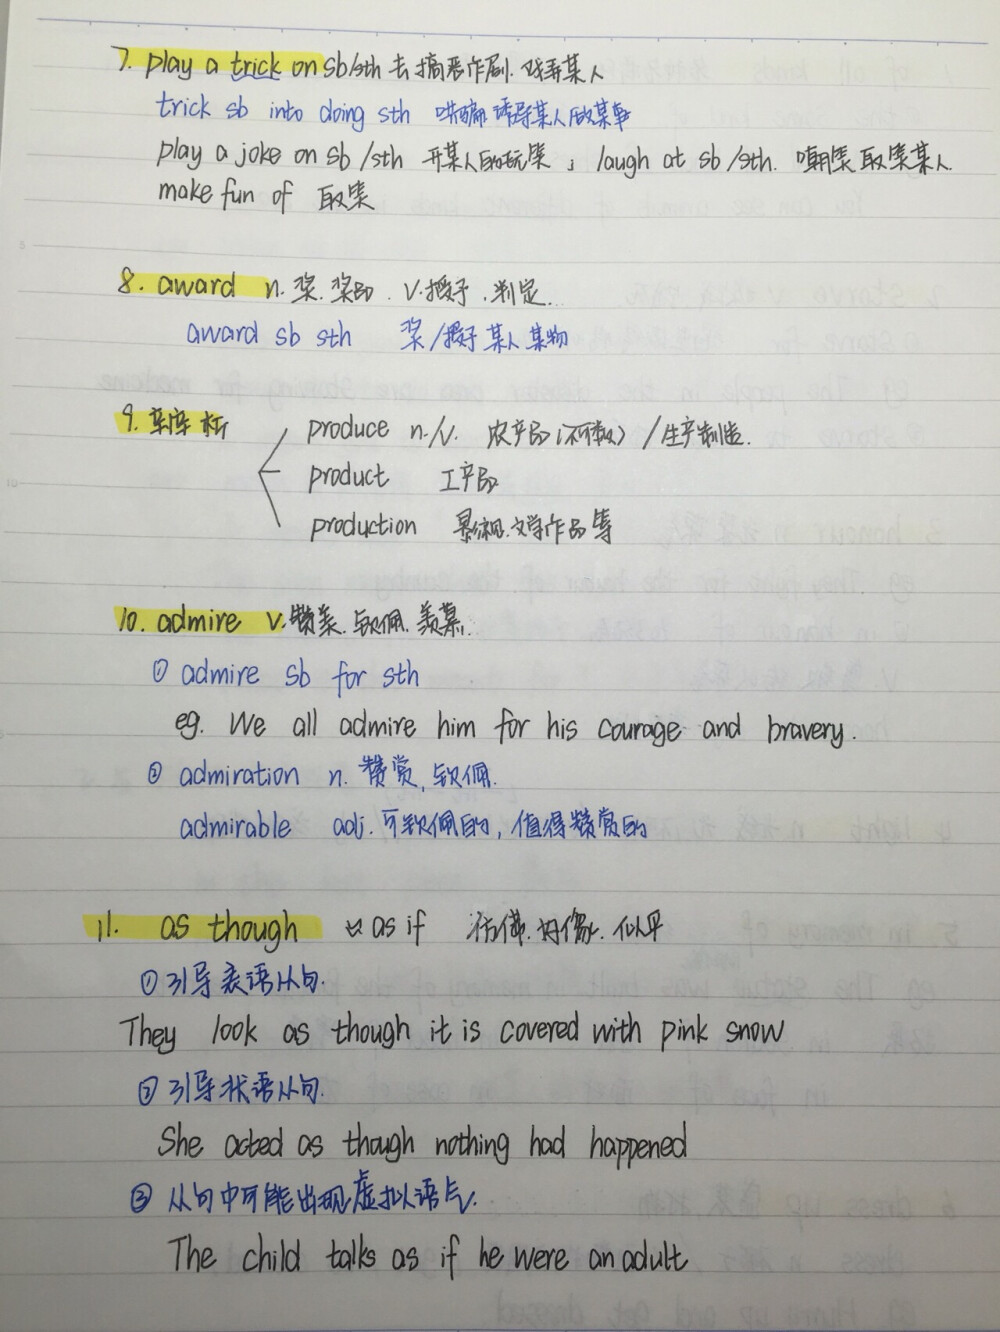 7. play a trick on sb/sth 去搞恶作剧. 戏弄某人
trick sb into doing sth 哄骗 诱导某人做某事
play a joke on sb/sth 开某人的玩笑; laugh at sb/sth. 嘲笑 取笑某人.
make fun of 取笑
8. award n. 奖. 奖品. v. 授予. 判定.
award sb sth 奖/授予某人某物
9. 辨析
produce n./v. 农产品(不可数) / 生产制造.
product 工产品
production 影视. 文学作品等
10. admire v. 赞美. 钦佩. 羡慕.
① admire sb for sth
eg. We all admire him for his courage and bravery.
② admiration n. 赞赏, 钦佩.
admirable adj. 可钦佩的, 值得赞赏的
11. as though as if 仿佛. 好像. 似乎
① 引导表语从句.
They look as though it is covered with pink snow
② 引导状语从句.
She acted as though nothing had happened
③ 从句中可能出现虚拟语气.
The child talks as if he were an adult